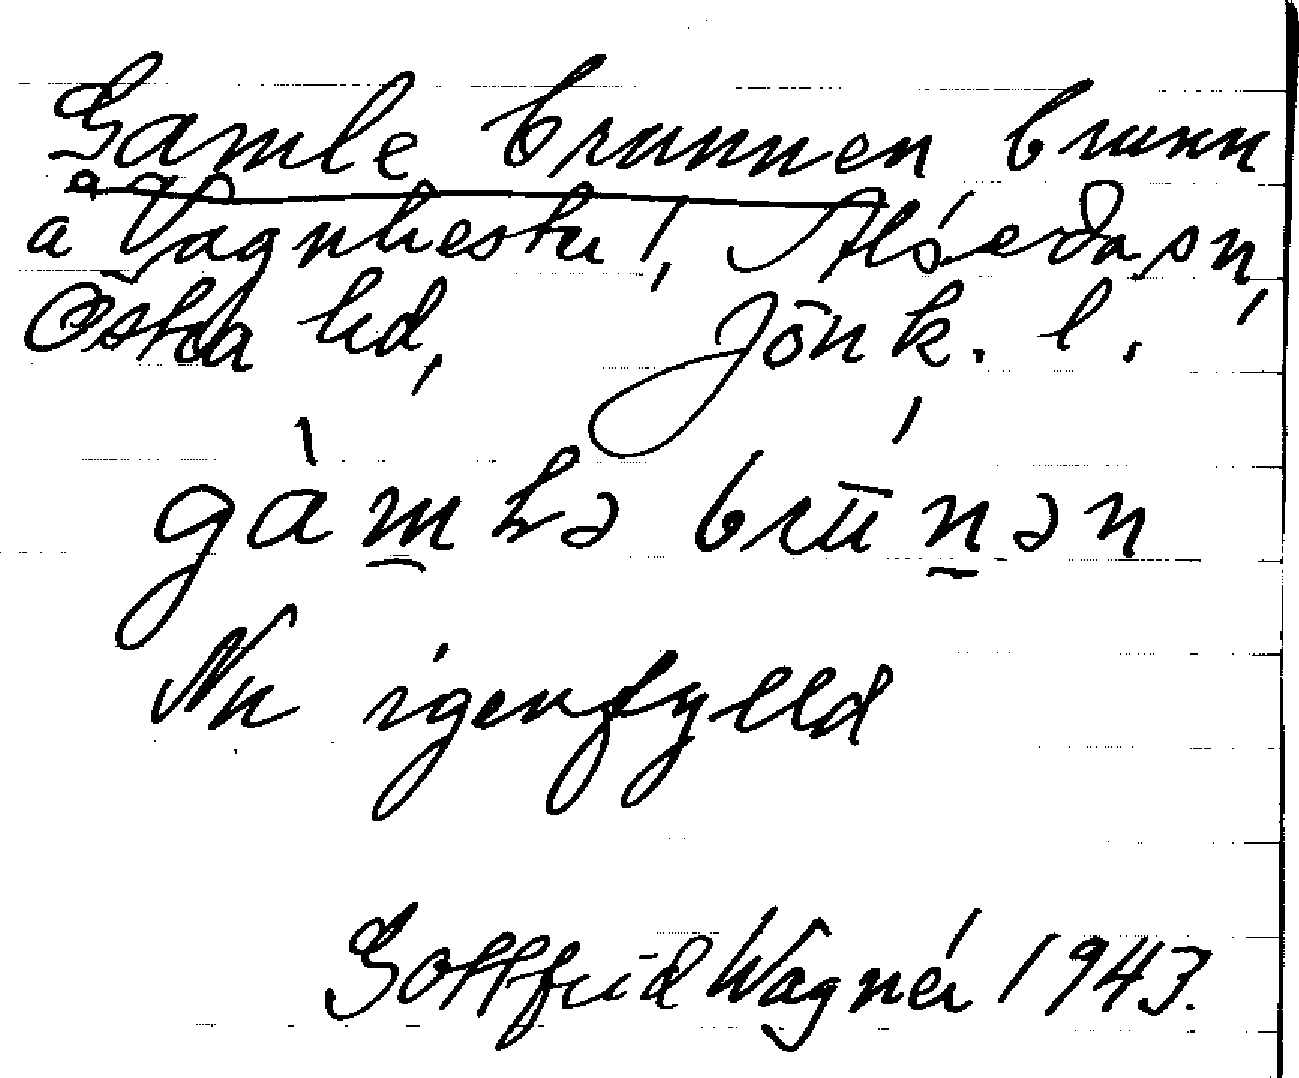 Gamle brunnen brunn
å Vagnhester, Alseda sn,
Östra hd, Jönk. l.
gàmlə brūnən
Nu igenfylld
Gottfrid Wagnér 1943.